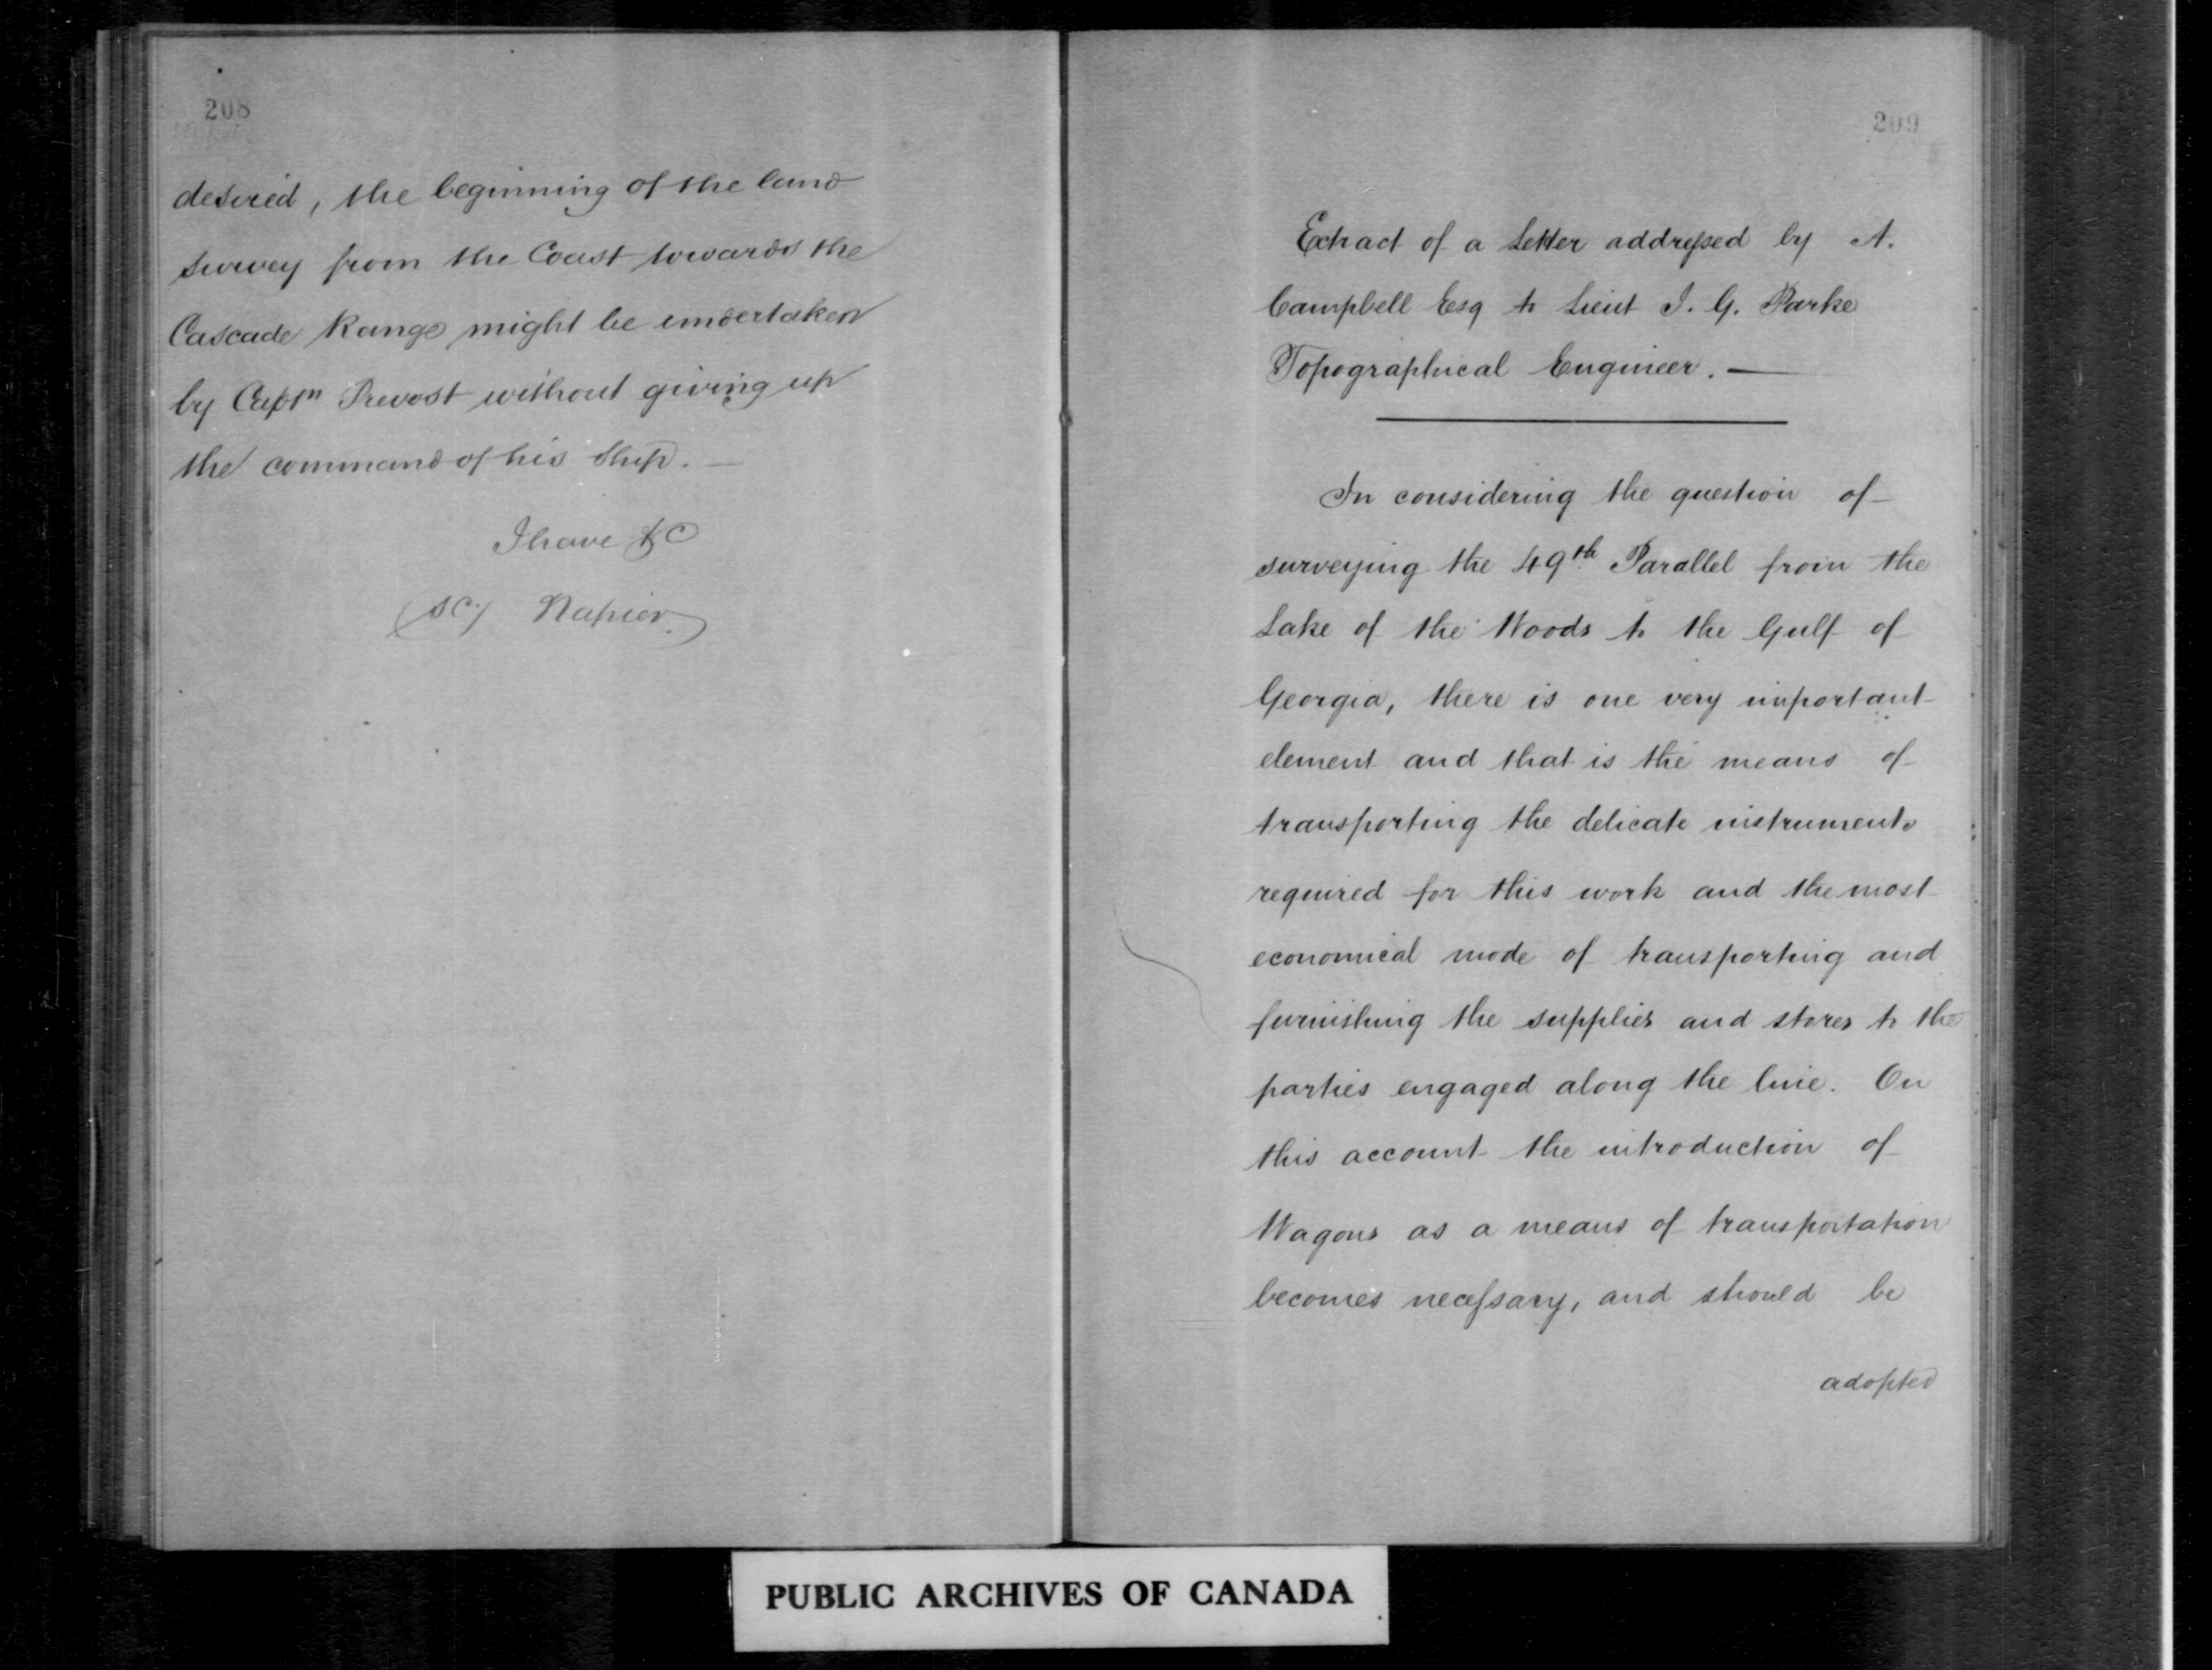 208
desired, the beginning of the land
survey from the Coast towards the
Cascade Range might be undertaken
by Captn Prevost without giving up
the command of his Ship. —
I have &c
Napier
209
Extract of a Letter addressed by A.
Campbell Esq to Lieut J. G. Parke
Topographical Engineer. —
In considering the question of
surveying the 49th Parallel from the
Lake of the Woods to the Gulf of
Georgia, there is one very important
element and that is the means of
transporting the delicate instruments
required for this work and the most
economical mode of transporting and
furnishing the supplies and stores to the
parties engaged along the line. On
this account the introduction of
Wagons as a means of transportation
becomes necessary, and should be
adopted
PUBLIC ARCHIVES OF CANADA